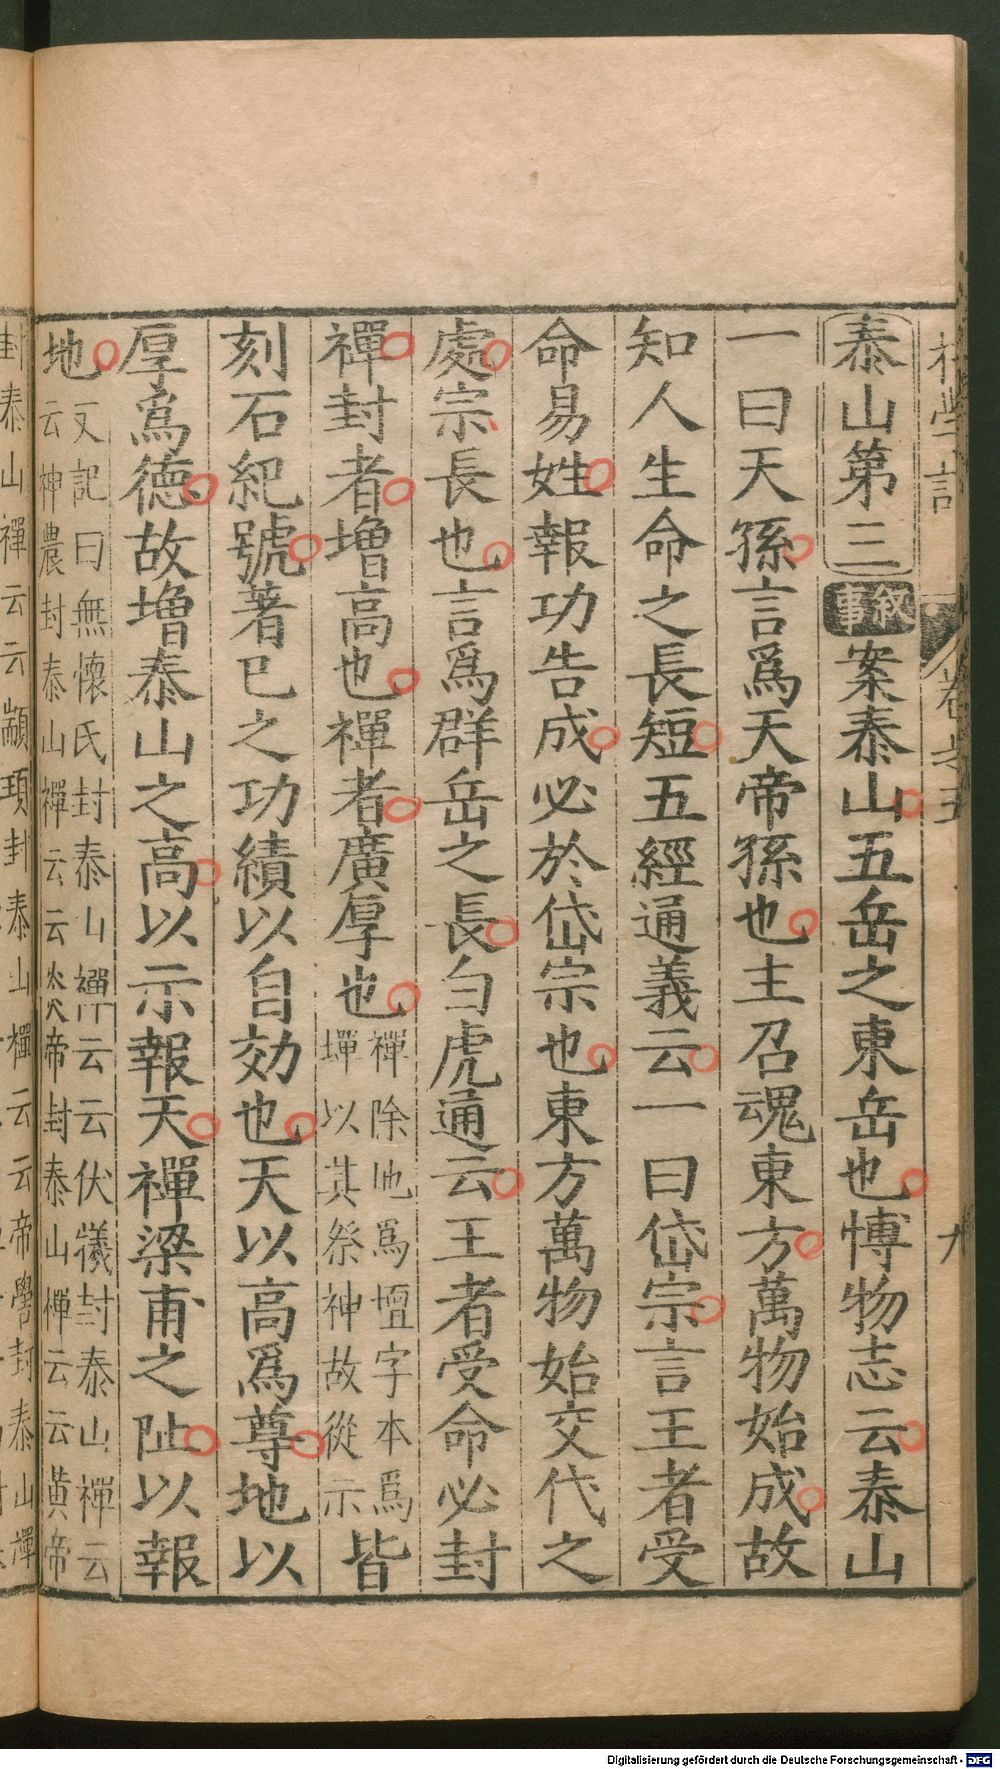 初學記 卷之五 九
泰山第三 叙事 案泰山五岳之東岳也博物志云泰山
一曰天孫言爲天帝孫也主召魂東方萬物始成故
知人生命之長短五經通義云一曰岱宗言王者受
命易姓報功告成必於岱宗也東方萬物始交代之
處宗長也言爲群岳之長白虎通云王者受命必封
禪封者增高也禪者廣厚也禪除地爲壇字本爲墠以其祭神故從示皆
刻石紀號著已之功績以自効也天以高爲尊地以
厚爲德故增泰山之高以示報天禪梁甫之阯以報
地又記曰無懷氏封泰山禪云云伏犧封泰山禪云云神農封泰山禪云云炎帝封泰山禪云云黃帝
封泰山禪云云顓頊封泰山禪云云帝嚳封泰山禪
Digitalisierung gefördert durch die Deutsche Forschungsgemeinschaft - DFG